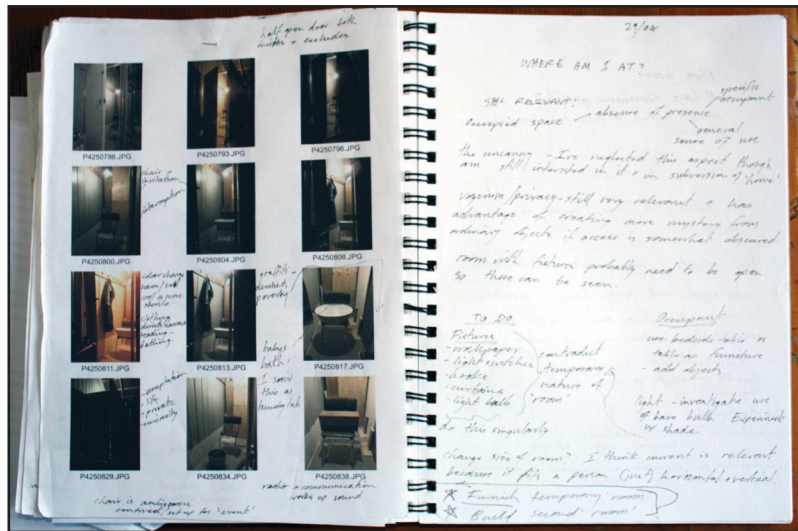 half open door both
invites + excludes
P4250786.JPG
P4250793.JPG
P4250796.JPG
chair =
invitation
interrogation
P4250800.JPG
P4250804.JPG
P4250808.JPG
colour change
warm/cool
cool is more
clothing
reading -
bathing
graffiti -
poverty
P4250811.JPG
P4250813.JPG
P4250817.JPG
babys
bath!
I said
this as
- private
- curiosity
P4250829.JPG
P4250834.JPG
P4250838.JPG
radio = communication
works w sound
chair is ambiguous
centered/set up for 'event'
29/04
WHERE AM I AT?
STILL RELEVANT:
specific
occupant
occupied space
absence of presence
general
sense of use
the uncanny - I've neglected this aspect though
am still interested in it + in subversion of 'home'
voyeurism/privacy - still very relevant + has
advantage of creating more mystery from
ordinary objects if access is somewhat obscured
room with fixtures probably need to be open
so these can be seen.
TO DO
Fixtures
- wallpaper
- light switches
- hooks
- curtains
- light bulb
contradict
temporary
nature of
'room'
do this singularly
Occupant
use bedside table or
table as furniture
- add objects
light - investigate use
of bare bulb. Experiment
w shade.
change size of room? I think current is relevant
because it fits a person (just) horizontal + vertical.
* Furnish temporary 'room'
* Build second 'room'